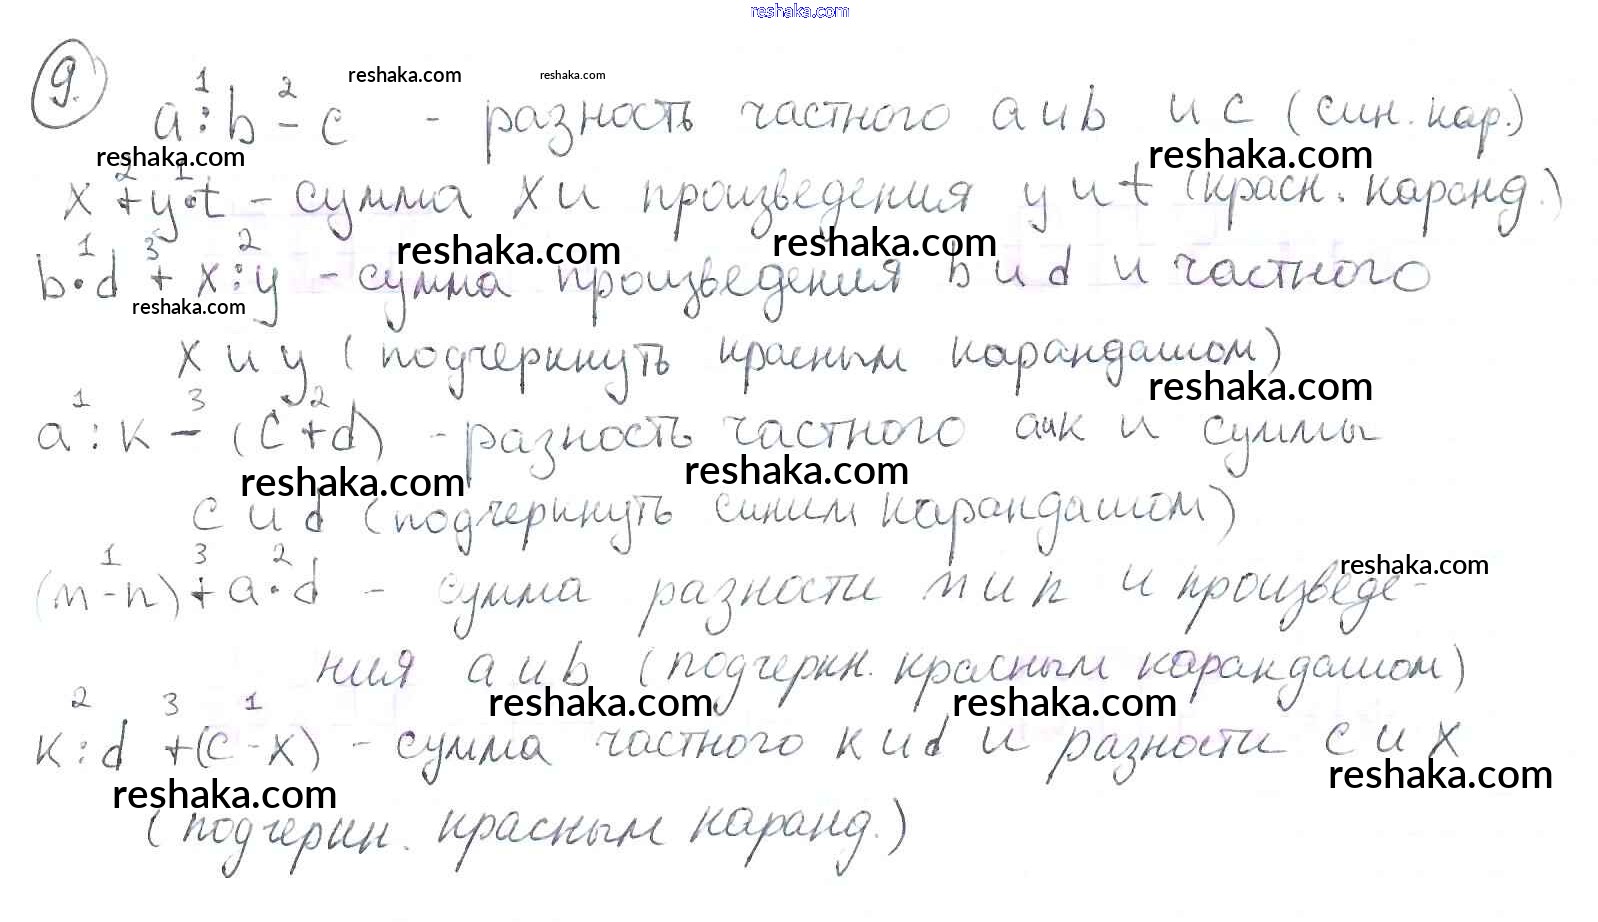 reshaka.com
9.
reshaka.com reshaka.com
1 2
a : b - c - разность частного a и b и c (син. кар.)
reshaka.com reshaka.com
2 1
x + y · t - сумма x и произведения y и t (красн. каранд.)
reshaka.com reshaka.com
1 3 2
b · d + x : y - сумма произведения b и d и частного
reshaka.com
x и y (подчеркнуть красным карандашом)
reshaka.com
1 3 2
a : к - (c + d) - разность частного a и к и суммы
reshaka.com reshaka.com
c и d (подчеркнуть синим карандашом)
1 3 2
(m - n) + a · d - сумма разности m и n и произведе-
reshaka.com
ния a и b (подчеркн. красным карандашом)
reshaka.com reshaka.com
2 3 1
к : d + (c - x) - сумма частного к и d и разности c и x
reshaka.com reshaka.com
(подчеркн. красным каранд.)